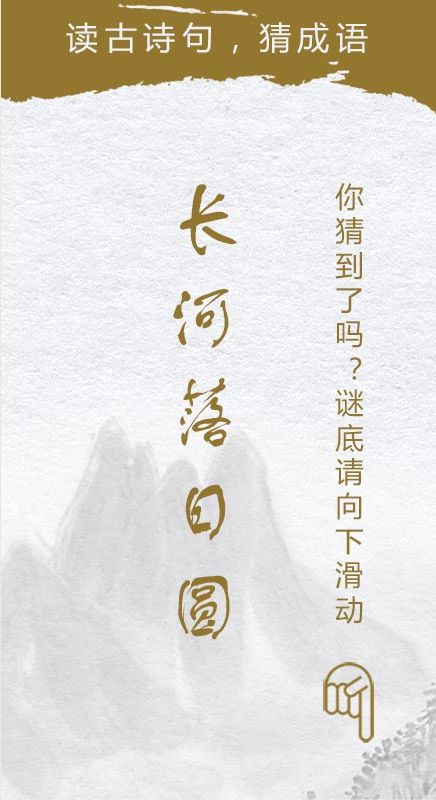 读古诗句，猜成语
长河落日圆
你猜到了吗？谜底请向下滑动